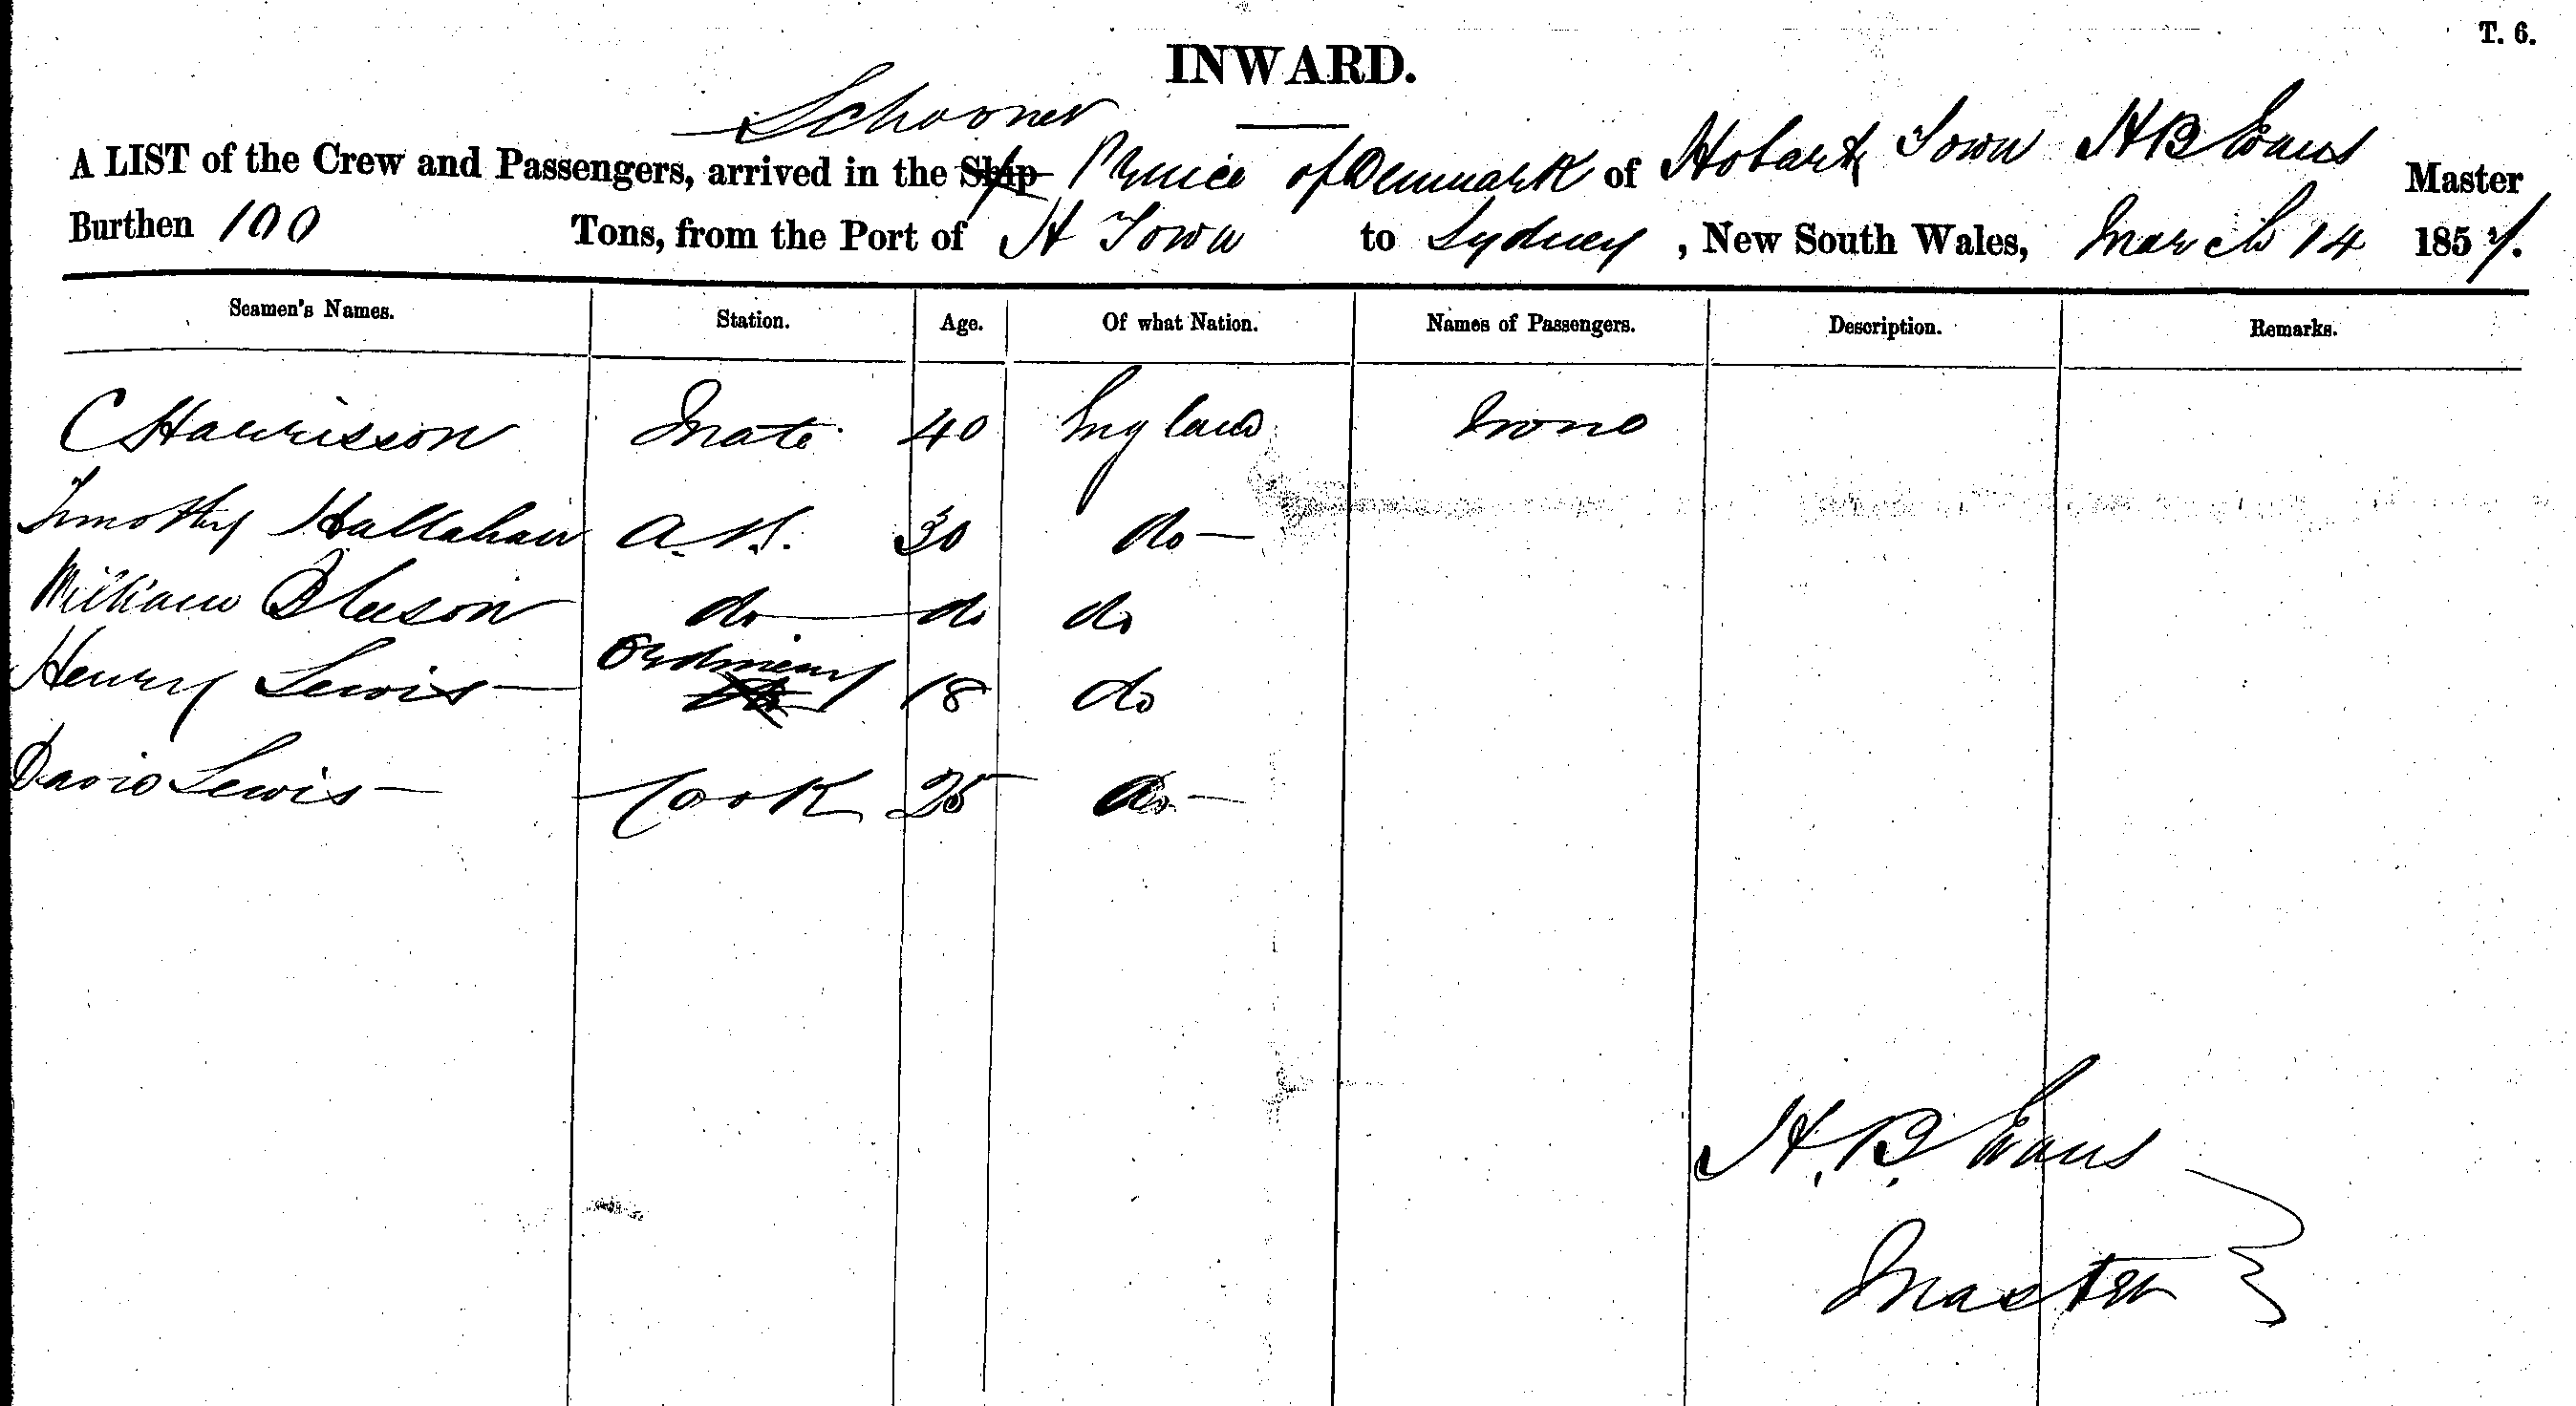 T. 6.
INWARD.
Schooner
A LIST of the Crew and Passengers, arrived in the Ship Prince of Denmark of Hobart Town H B Evans Master
Burthen 100 Tons, from the Port of H Town to Sydney, New South Wales, March 14 1857.
Seamen's Names. Station. Age. Of what Nation. Names of Passengers. Description. Remarks.
C Harrisson Mate 40 England None
Timothy Hallahan A.B. 30 do —
William Gleeson do — do do
Henry Lewis — Ordinary do 18 do
David Lewis — Cook 25 do —
H. B. Evans
Master